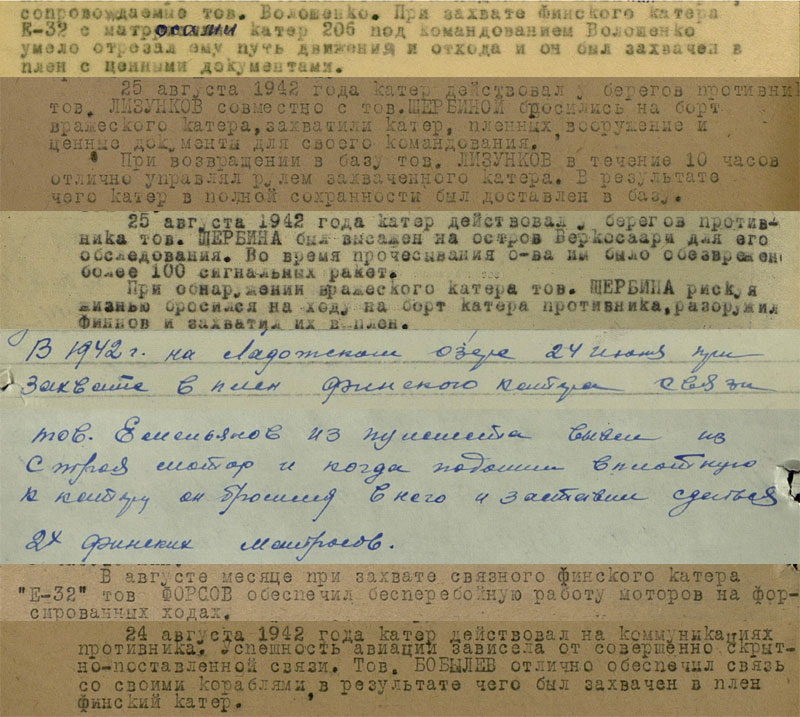 сопровождаемые тов. Волошенко. При захвате Финского катера
Е-32 с матросами катер 206 под командованием Волошенко
умело отрезал ему путь движения и отхода и он был захвачен в
плен с ценными документами.
25 августа 1942 года катер действовал у берегов противник
тов. ЛИЗУНКОВ совместно с тов.ЩЕРБИНОЙ бросились на борт
вражеского катера,захватили катер, пленных вооружение и
ценные документы для своего командования.
При возвращении в базу тов. ЛИЗУНКОВ в течение 10 часов
отлично управлял рулем захваченного катера. В результате
чего катер в полной сохранности был доставлен в базу.
25 августа 1942 года катер действовал у берегов против-
ника тов. ЩЕРБИНА был высажен на остров Веркосаари для его
обследования. Во время прочесывания о-ва им было обезврежен
более 100 сигнальных ракет.
При обнаружении вражеского катера тов. ЩЕРБИНА рискуя
жизнью бросился на ходу на борт катера противника,разоружил
финнов и захватил их в плен.
В 1942 г. на Ладожском озере 24 июня при
захвате в плен финского катера связи
тов. Емельянов из пулемета вывел из
строя мотор и когда подошли вплотную
к катеру он бросился в него и заставил сдаться
2х финских матросов.
В августе месяце при захвате связного финского катера
"Е-32" тов ФОРСОВ обеспечил бесперебойную работу моторов на фор-
сированных ходах.
24 августа 1942 года катер действовал на коммуникациях
противника. Успешность авиации зависела от совершенно скрыт-
но-поставленной связи. Тов. БОБЫЛЕВ отлично обеспечил связь
со своими кораблями в результате чего был захвачен в плен
финский катер.